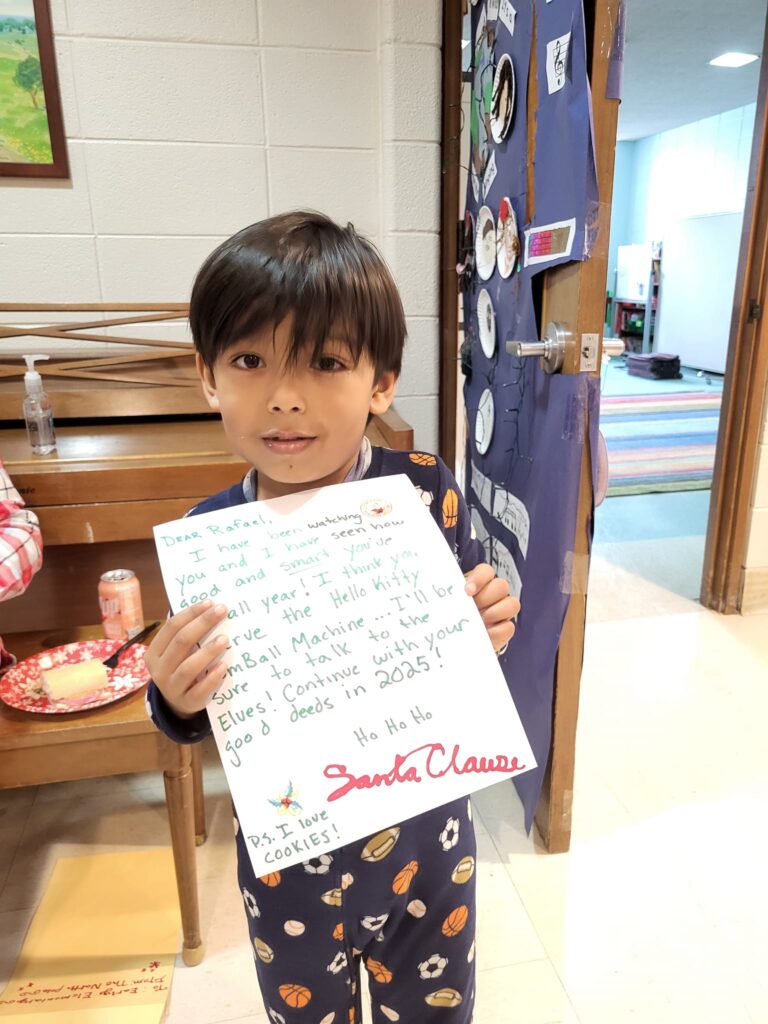 Dear Rafael,
I have been watching
you and I have seen how
good and smart you've
all year! I think you
the Hello Kitty
Ball Machine... I'll be
sure to talk to the
Elves! Continue with your
good deeds in 2025!
Ho Ho Ho
Santa Clause
P.S. I love
COOKIES!
To: Early Elementary
From: The North